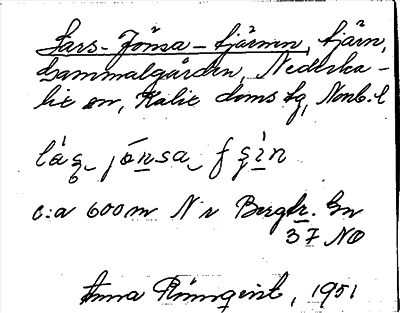 Lars-Jönsa-tjärnen, tjärn,
Gammalgården, Nederka-
lix sn, Kalix doms tg, Norrb. l
la's̩ jönsa ʃs̩i̱n
c:a 600 m N v Bergtr. Gn
37 NO
Anna Rönnqvist, 1951